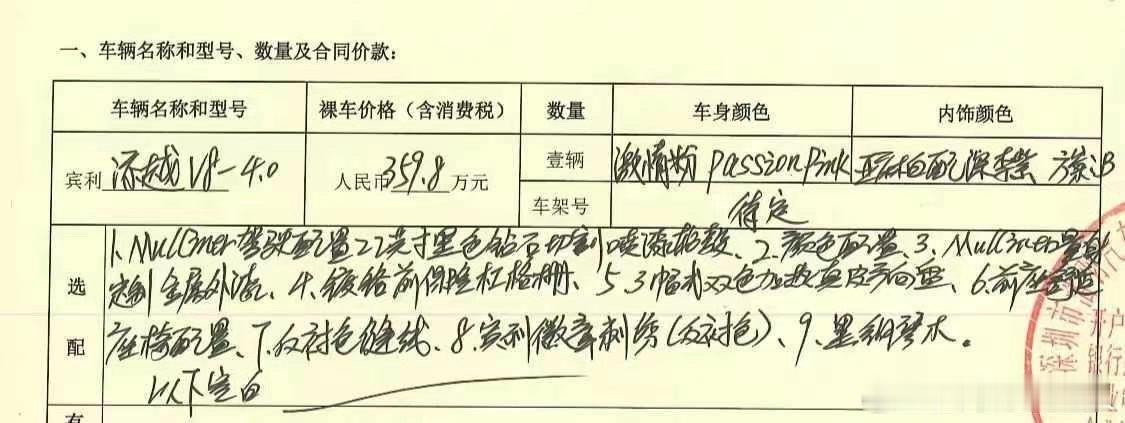 一、车辆名称和型号、数量及合同价款：
车辆名称和型号 裸车价格（含消费税） 数量 车身颜色 内饰颜色
宾利 添越V8-4.0 人民币 359.8 万元 壹辆 激情粉 Passion Pink 亚麻白配深紫 方案B
车架号 待定
选配
1、Mulliner驾驶配置22英寸黑色钻石切割喷漆轮毂、2、颜色配置、3、Mulliner量身
定制金属外漆、4、镀铬前保险杠格栅、5、3幅式双色加热真皮方向盘、6、前座舒适
座椅配置、7、反衬色缝线、8、宾利徽章刺绣(反衬色)、9、黑钢琴木。
以下空白
有
深圳市
开户
银行